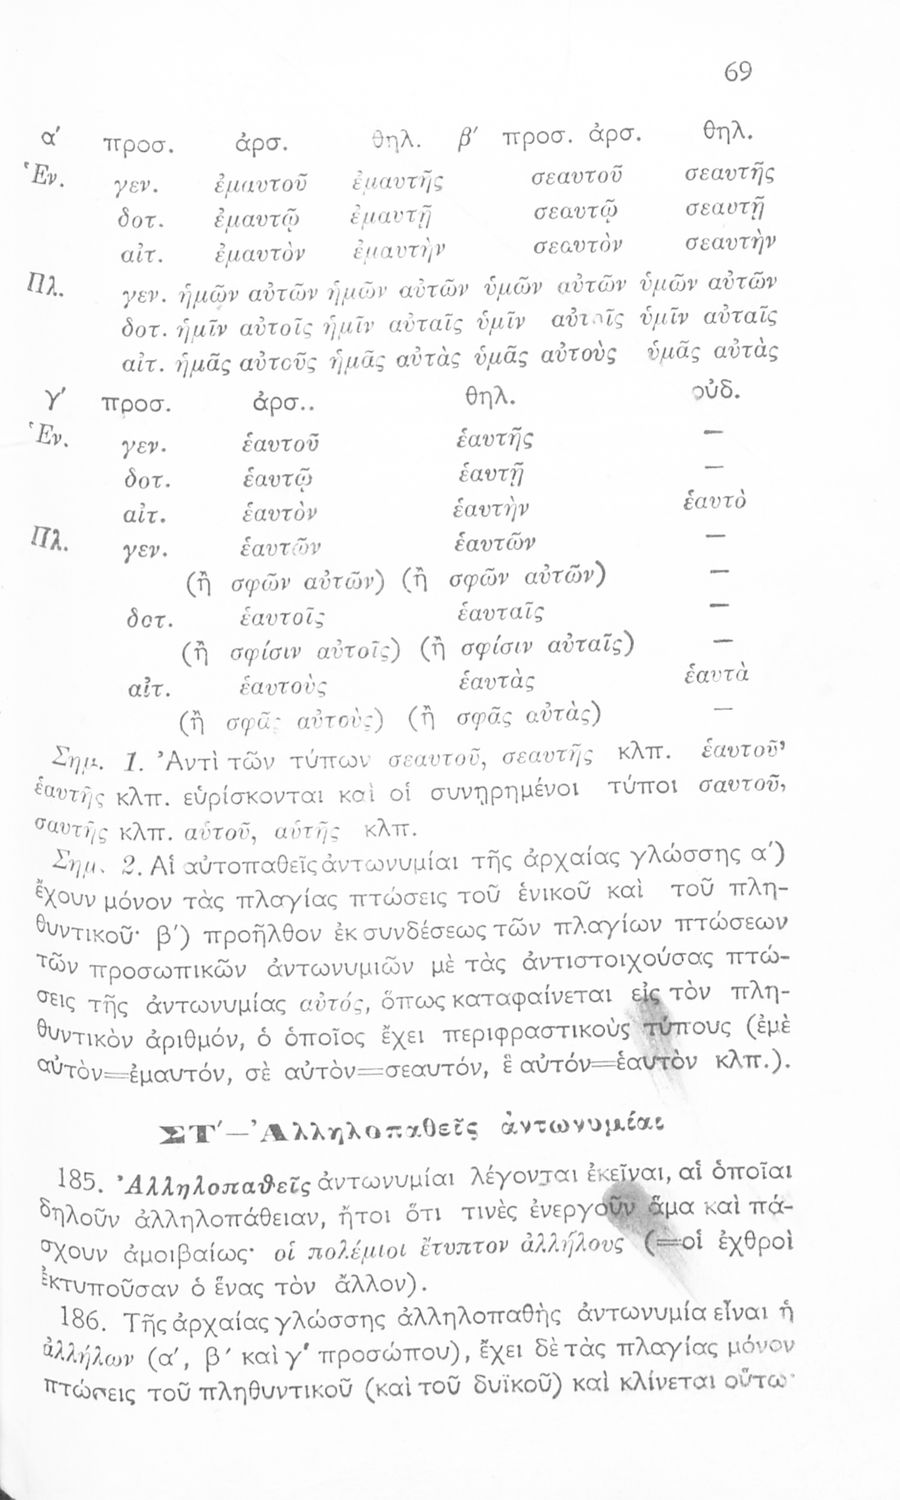 69
α′ προσ. ἀρσ. θηλ. β′ προσ. ἀρσ. θηλ.
Ἑν. γεν. ἐμαυτοῦ ἐμαυτῆς σεαυτοῦ σεαυτῆς
δοτ. ἐμαυτῷ ἐμαυτῇ σεαυτῷ σεαυτῇ
αἰτ. ἐμαυτὸν ἐμαυτὴν σεαυτὸν σεαυτὴν
Πλ. γεν. ἡμῶν αὐτῶν ἡμῶν αὐτῶν ὑμῶν αὐτῶν ὑμῶν αὐτῶν
δοτ. ἡμῖν αὐτοῖς ἡμῖν αὐταῖς ὑμῖν αὐτοῖς ὑμῖν αὐταῖς
αἰτ. ἡμᾶς αὐτοὺς ἡμᾶς αὐτὰς ὑμᾶς αὐτοὺς ὑμᾶς αὐτὰς
γ′ προσ. ἀρσ.. θηλ. οὐδ.
Ἑν. γεν. ἑαυτοῦ ἑαυτῆς —
δοτ. ἑαυτῷ ἑαυτῇ —
αἰτ. ἑαυτὸν ἑαυτὴν ἑαυτὸ
Πλ. γεν. ἑαυτῶν ἑαυτῶν —
(ἢ σφῶν αὐτῶν) (ἢ σφῶν αὐτῶν) —
δοτ. ἑαυτοῖς ἑαυταῖς —
(ἢ σφίσιν αὐτοῖς) (ἢ σφίσιν αὐταῖς) —
αἰτ. ἑαυτοὺς ἑαυτὰς ἑαυτὰ
(ἢ σφᾶς αὐτοὺς) (ἢ σφᾶς αὐτὰς) —
Σημ. 1. Ἀντὶ τῶν τύπων σεαυτοῦ, σεαυτῆς κλπ. ἑαυτοῦ,
ἑαυτῆς κλπ. εὑρίσκονται καὶ οἱ συνῃρημένοι τύποι σαυτοῦ,
σαυτῆς κλπ. αὑτοῦ, αὑτῆς κλπ.
Σημ. 2. Αἱ αὐτοπαθεῖς ἀντωνυμίαι τῆς ἀρχαίας γλώσσης α′)
ἔχουν μόνον τὰς πλαγίας πτώσεις τοῦ ἑνικοῦ καὶ τοῦ πλη-
θυντικοῦ· β′) προῆλθον ἐκ συνδέσεως τῶν πλαγίων πτώσεων
τῶν προσωπικῶν ἀντωνυμιῶν μὲ τὰς ἀντιστοιχούσας πτώ-
σεις τῆς ἀντωνυμίας αὐτός, ὅπως καταφαίνεται εἰς τὸν πλη-
θυντικὸν ἀριθμόν, ὁ ὁποῖος ἔχει περιφραστικοὺς τύπους (ἐμὲ
αὐτὸν=ἐμαυτόν, σὲ αὐτὸν=σεαυτόν, ἓ αὐτόν=ἑαυτὸν κλπ.).
ΣΤ′—Ἀλληλοπαθεῖς ἀντωνυμίαι
185. Ἀλληλοπαθεῖς ἀντωνυμίαι λέγονται ἐκεῖναι, αἱ ὁποῖαι
δηλοῦν ἀλληλοπάθειαν, ἤτοι ὅτι τινὲς ἐνεργοῦν ἅμα καὶ πά-
σχουν ἀμοιβαίως· οἱ πολέμιοι ἔτυπτον ἀλλήλους (=οἱ ἐχθροὶ
ἐκτυποῦσαν ὁ ἕνας τὸν ἄλλον).
186. Τῆς ἀρχαίας γλώσσης ἀλληλοπαθὴς ἀντωνυμία εἶναι ἡ
ἀλλήλων (α′, β′ καὶ γ′ προσώπου), ἔχει δὲ τὰς πλαγίας μόνον
πτώσεις τοῦ πληθυντικοῦ (καὶ τοῦ δυϊκοῦ) καὶ κλίνεται οὕτω·